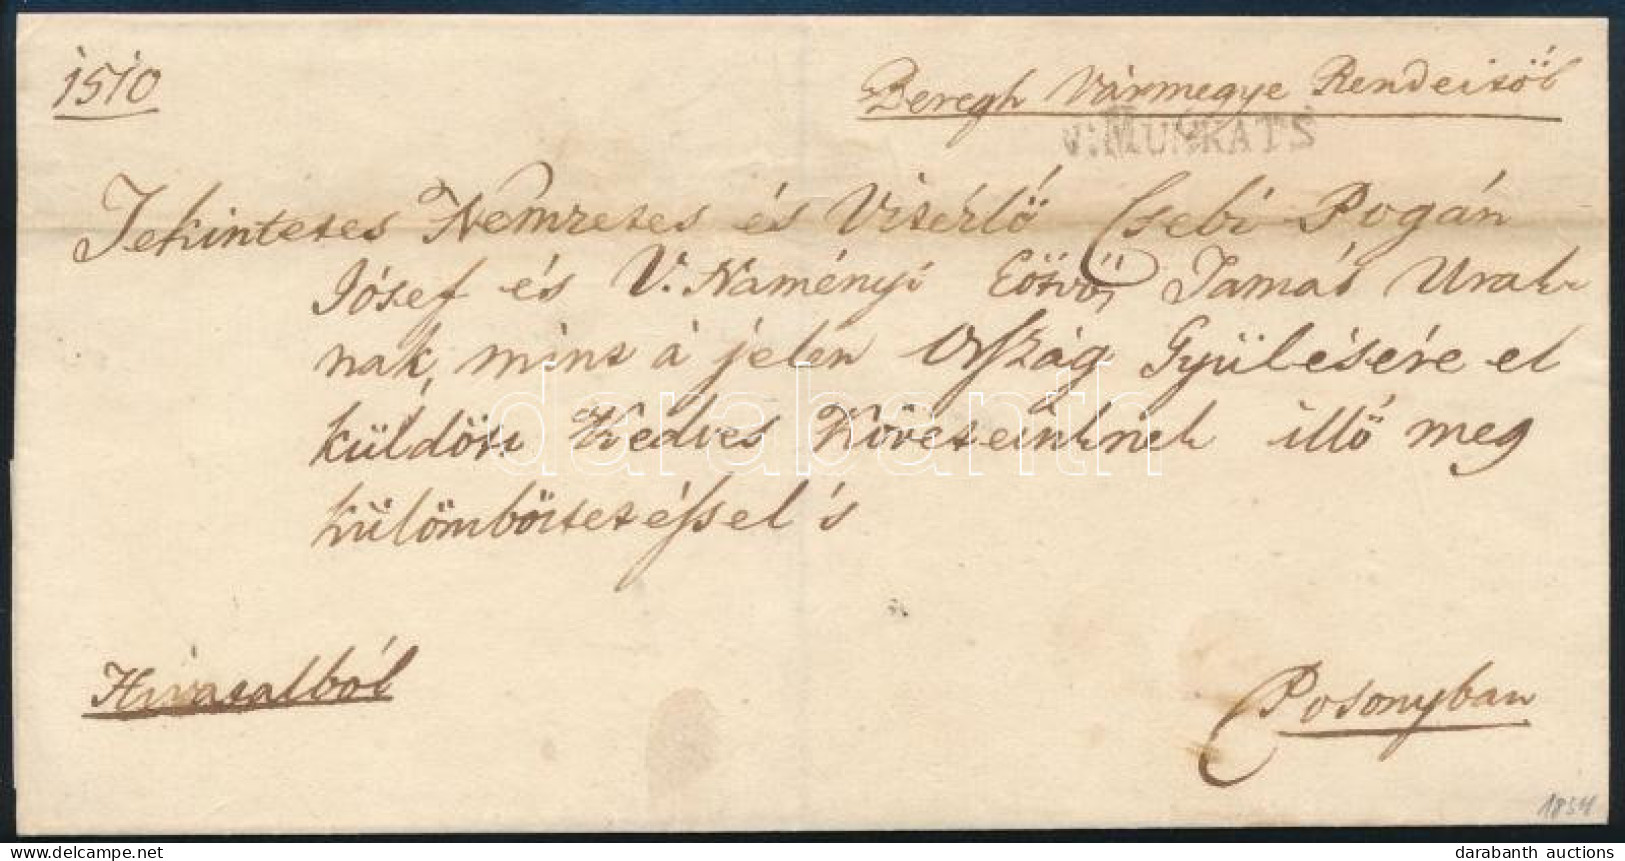 1510
Beregh Vármegye Rendeitöl
V: MUNKATS
Tekintetes Nemzetes és Vitézlő Csebi Pogán
Jósef és V. Naményi Eötvös Tamás Urak-
nak, mint á jelen Ország Gyülésére el
küldött Kedves Követeinknek illő meg
külömböztetéssel 's
Hivatalból
Posonyban
1834
darabanth
darabanth auctions
delcampe.net